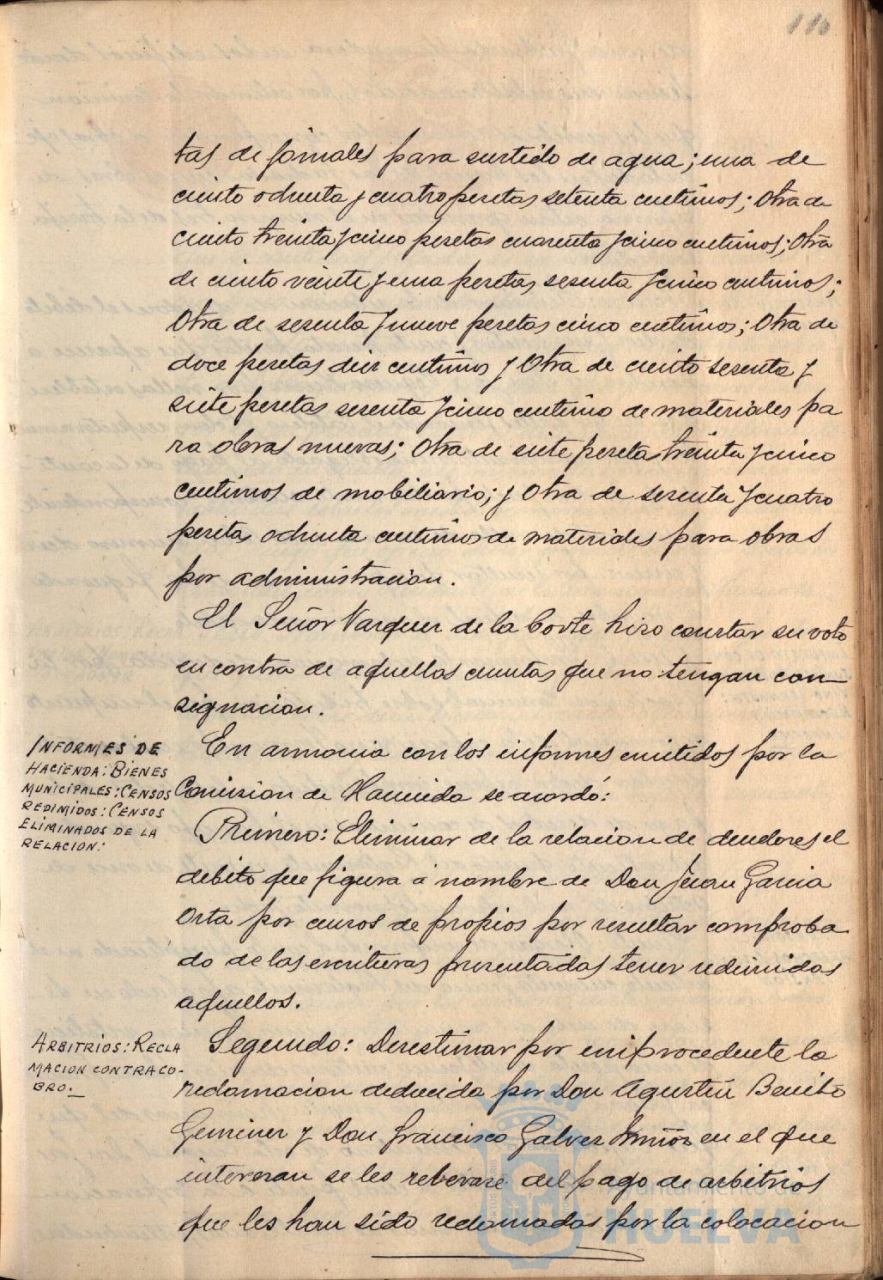 116
tas de jornales para surtido de agua; una de
ciento ochenta y cuatro pesetas setenta centimos; Otra de
ciento treinta y cinco pesetas cuarenta y cinco centimos; Otra
de ciento veinte y una pesetas sesenta y cinco centimos;
Otra de sesenta y nueve pesetas cinco centimos; Otra de
doce pesetas diez centimos y Otra de ciento sesenta y
siete pesetas sesenta y cinco centimo de materiales pa
ra obras nuevas; Otra de siete peseta treinta y cinco
centimos de mobiliario; y Otra de sesenta y cuatro
pesetas ochenta centimos de materiales para obras
por administracion.
El Señor Vazquez de la Corte hizo constar su voto
en contra de aquellas cuentas que no tengan con-
signacion.
INFORMES DE
HACIENDA: BIENES
MUNICIPALES: CENSOS
REDIMIDOS: CENSOS
ELIMINADOS DE LA
RELACION:
En armonia con los informes emitidos por la
Comision de Hacienda se acordó:
Primero: Eliminar de la relacion de deudores el
debito que figura á nombre de Don Juan Garcia
Orta por censos de propios por resultar comproba
do de las escrituras presentadas tener redimidos
aquellos.
ARBITRIOS: RECLA
MACION CONTRA CO-
BRO._
Segundo: Desestimar por improcedente la
reclamacion deducida por Don Agustin Benito
Geminer y Don Francisco Galvez Muñoz en el que
interesan se les relevase del pago de arbitrios
que les han sido reclamadas por la colocacion
Ayuntamiento de
HUELVA